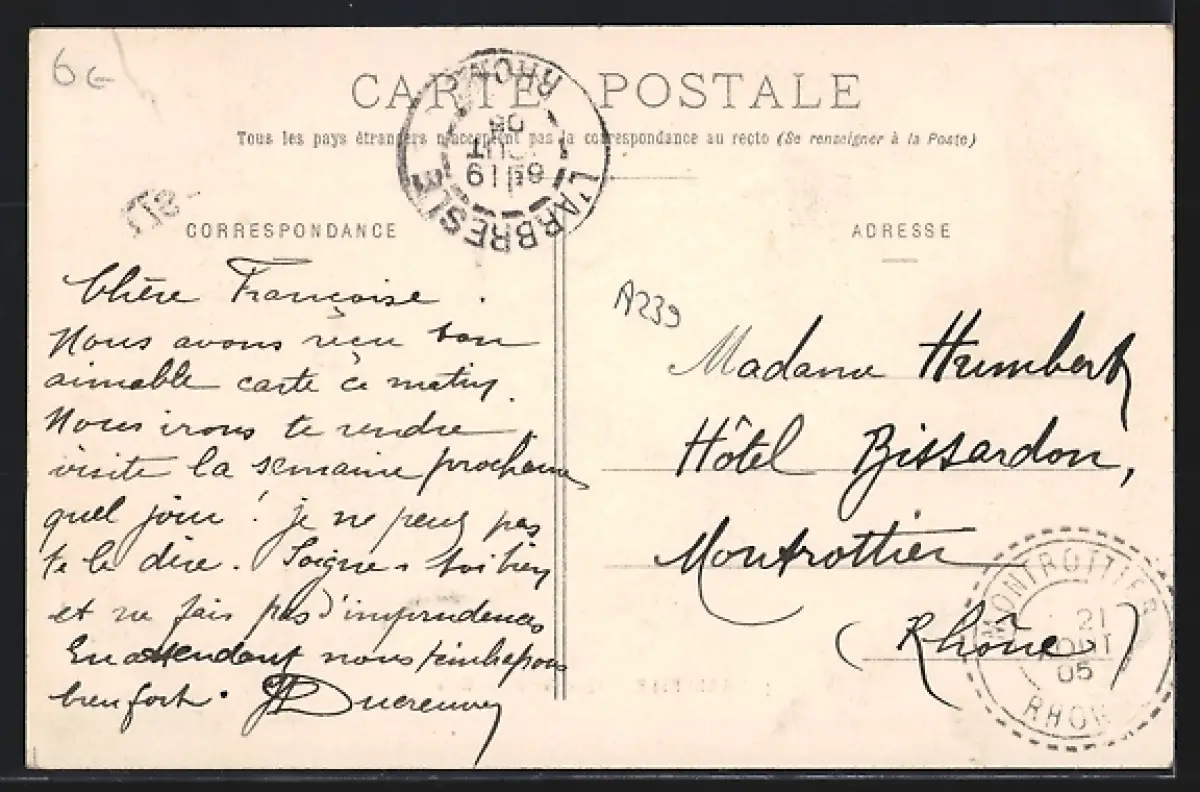 6 €
CARTE POSTALE
Tous les pays étrangers n'acceptent pas la correspondance au recto (Se renseigner à la Poste)
L'ARBRESLE
RHONE
19
AOUT
05
CORRESPONDANCE
Chère Françoise.
Nous avons reçu ton
aimable carte ce matin.
Nous irons te rendre
visite la semaine prochaine
quel jour! je ne peux pas
te le dire. Soigne toi bien
et ne fais pas d'imprudences
En attendant nous t'embrassons
bien fort.
ADRESSE
A239
Madame Humbert
Hôtel Bissardon,
Montrottier
(Rhône)
MONTROTTIER
21
AOUT
05
RHONE